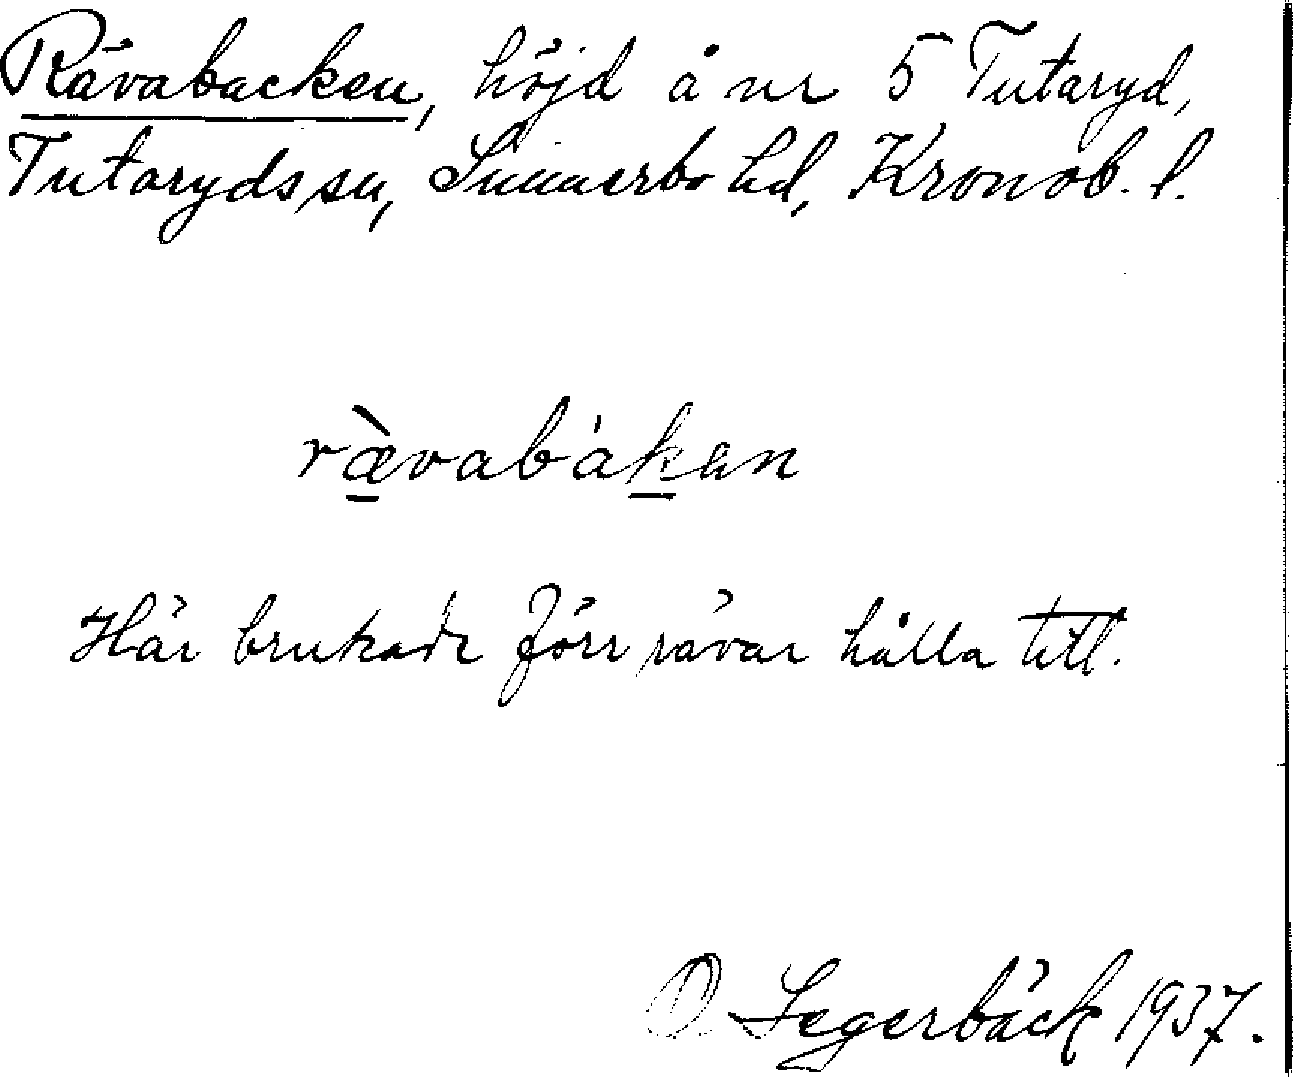 Rävabacken, höjd å nr 5 Tutaryd,
Tutaryds sn, Sunnerbo hd, Kronob. l.
ræ̀vabákan
Här brukade förr rävar hålla till.
O. Segerbäck 1937.